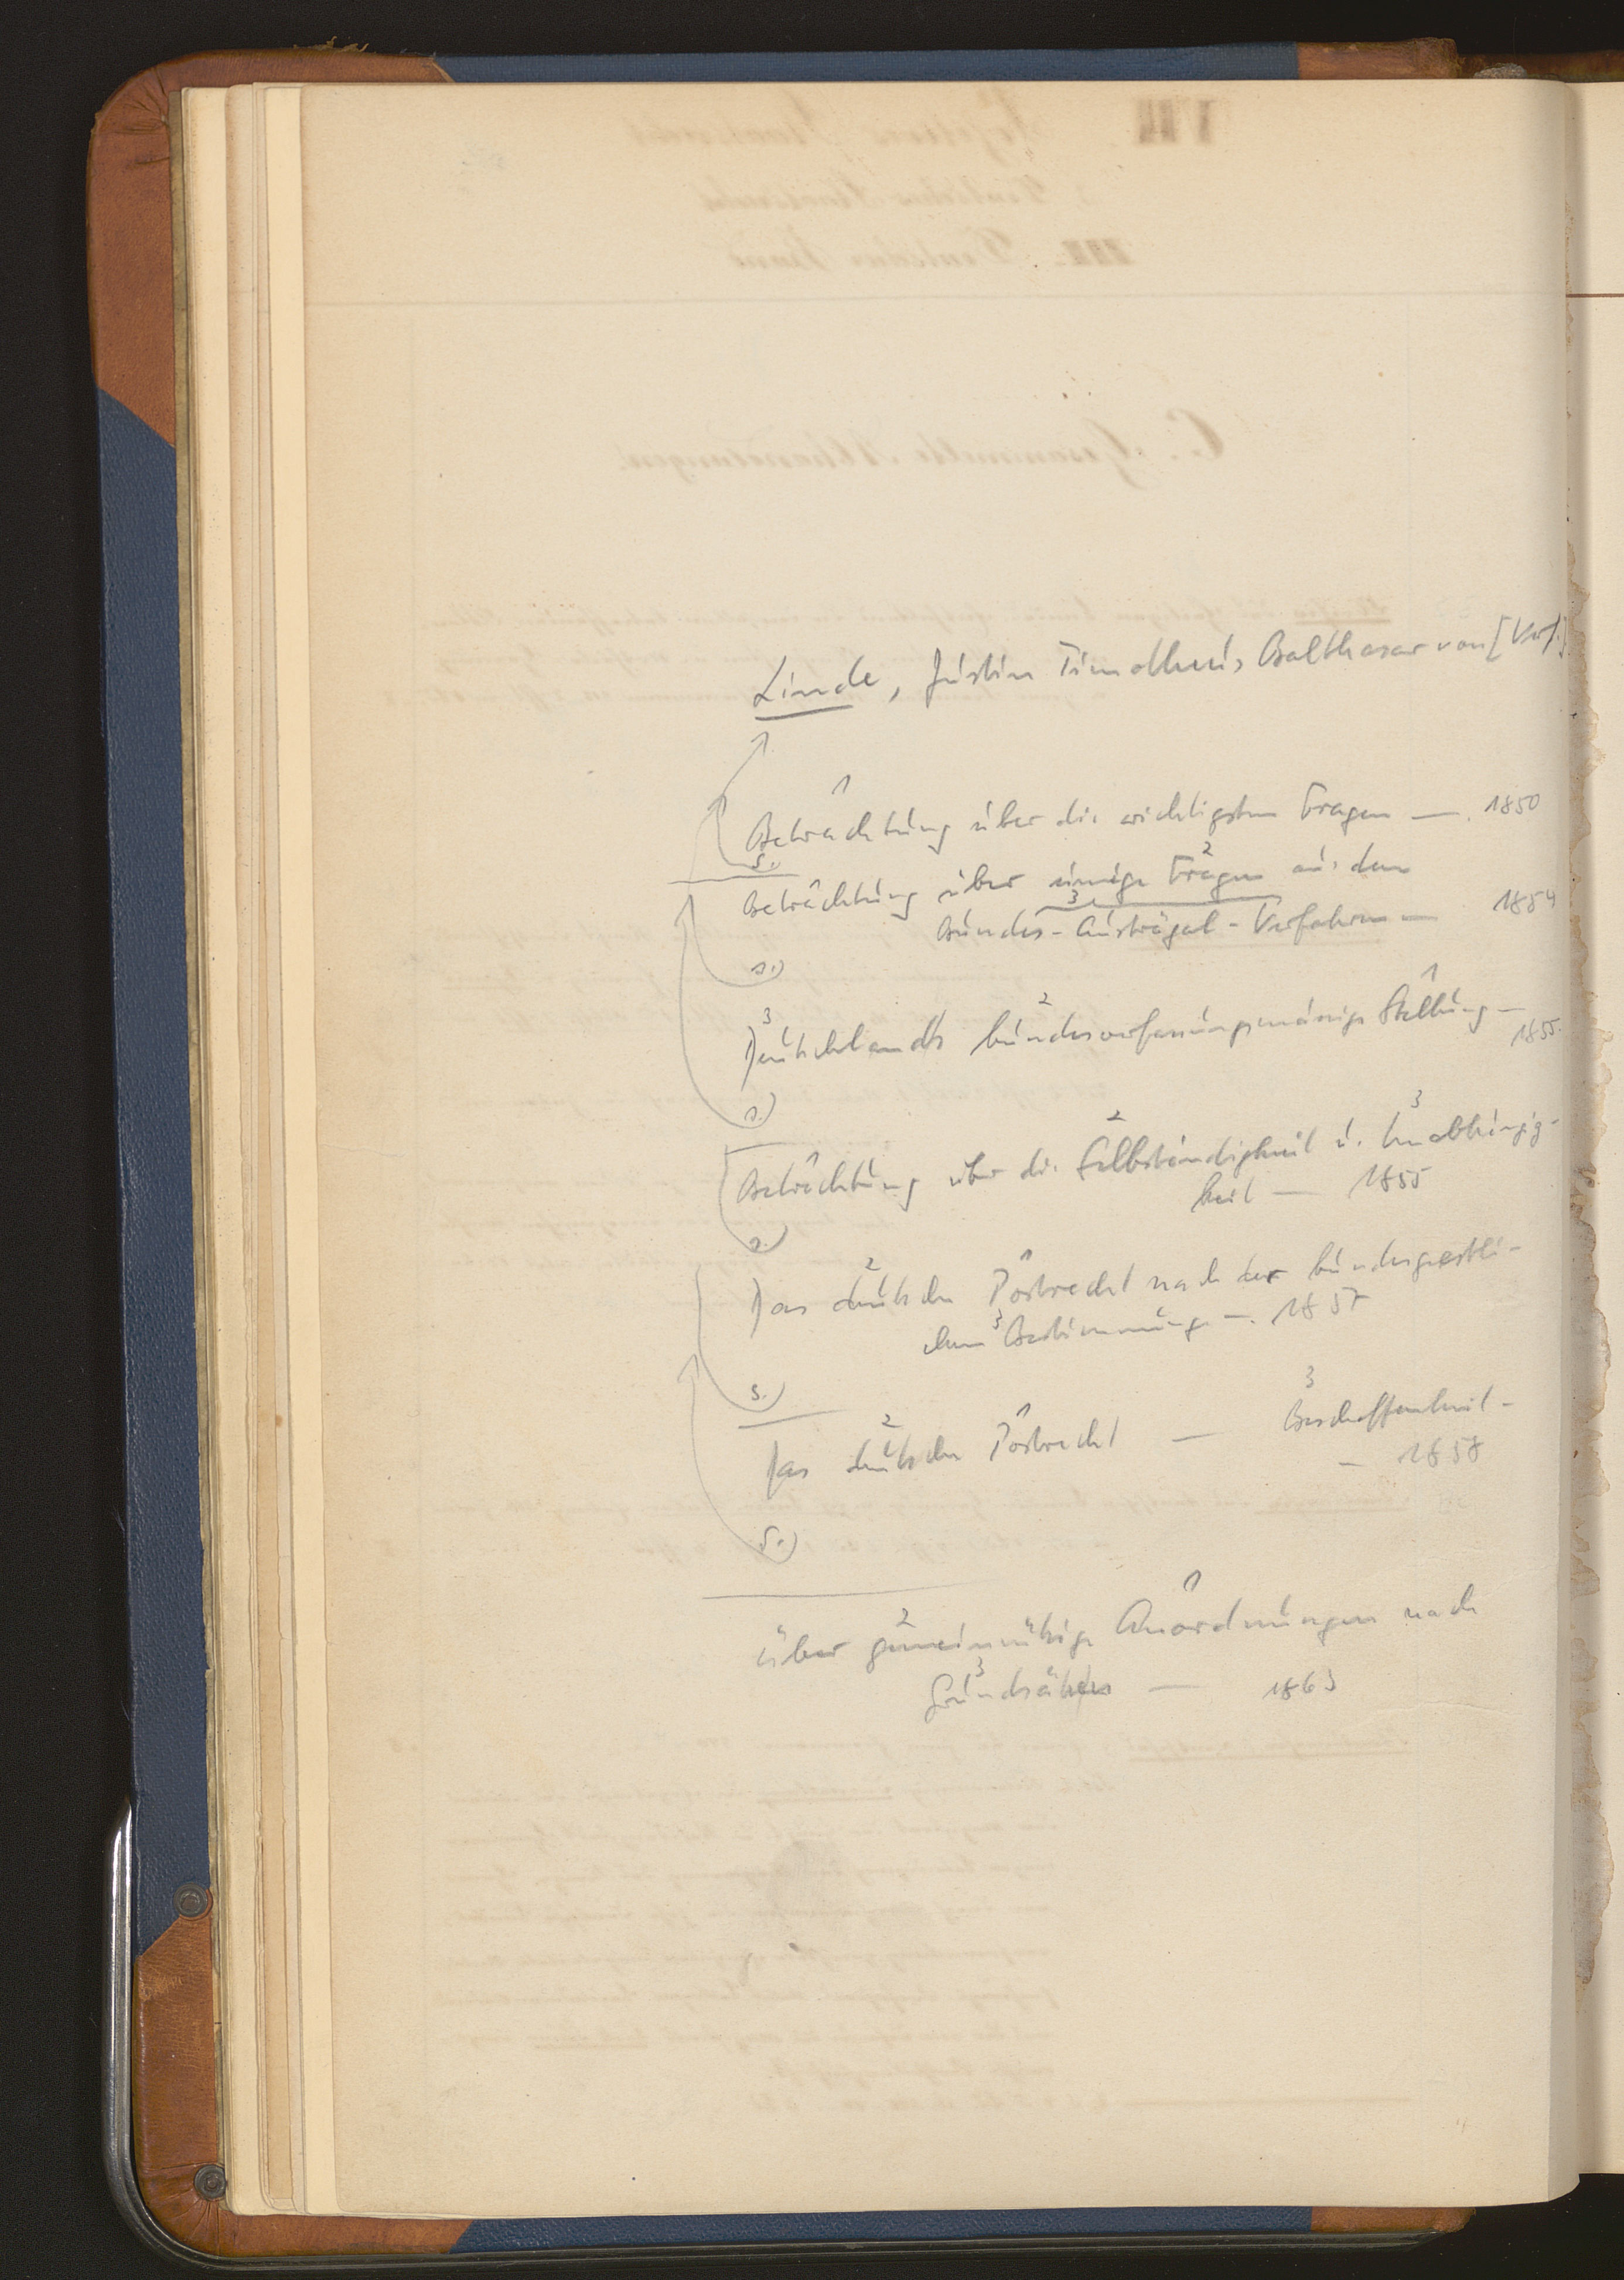 Linde, Justin Timotheus Balthasar von [Verf.]
1
Betrachtung über die wichtigsten Fragen — . 1850
s.)
1 2
Betrachtung über einige Fragen aus dem
3
Bundes-Austrägal-Verfahren — 1854
s.)
3 2 1
Deutschlands bundesverfassungsmässige Stellung —
1855.
s.)
1 2 3
Betrachtung über die Selbständigkeit u. Unabhängig-
keit — 1855
s.)
2 1
Das deutsche Postrecht nach der bundesgesetzli-
3
chen Bestimmung —. 1857
s.)
2 1 3
Das deutsche Postrecht — Beschaffenheit -
— 1858
s.)
2 1
über gemeinnützige Anordnungen nach
3
Grundsätzen — 1863